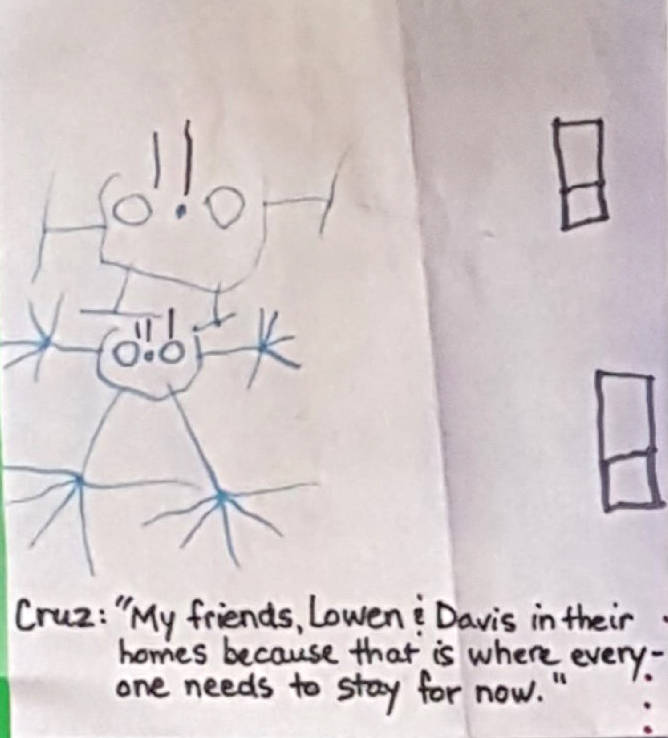 Cruz: "My friends, Lowen & Davis in their
homes because that is where every-
one needs to stay for now."